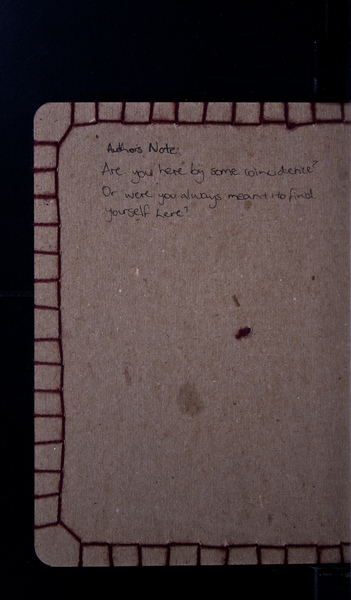 Authors Note:
Are you here by some coincidence?
Or were you always meant to find
yourself here?